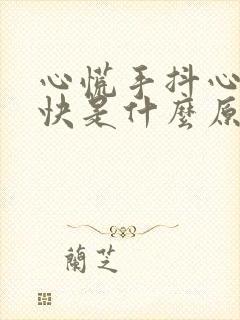 心慌手抖心
快是什麼原
蘭芝